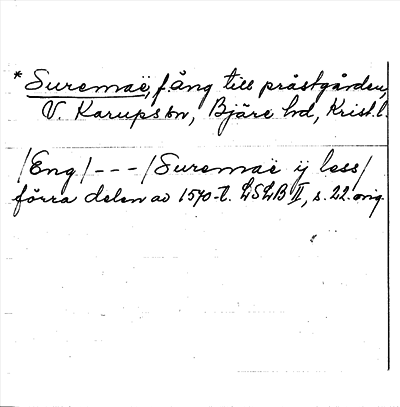 * Suremaë, f. äng till prästgården,
V. Karups sn, Bjäre hd, Krist. l.
/Eng/ --- /Suremaë ij less/
förra delen av 1570-t. LSLB II, s. 22. orig.